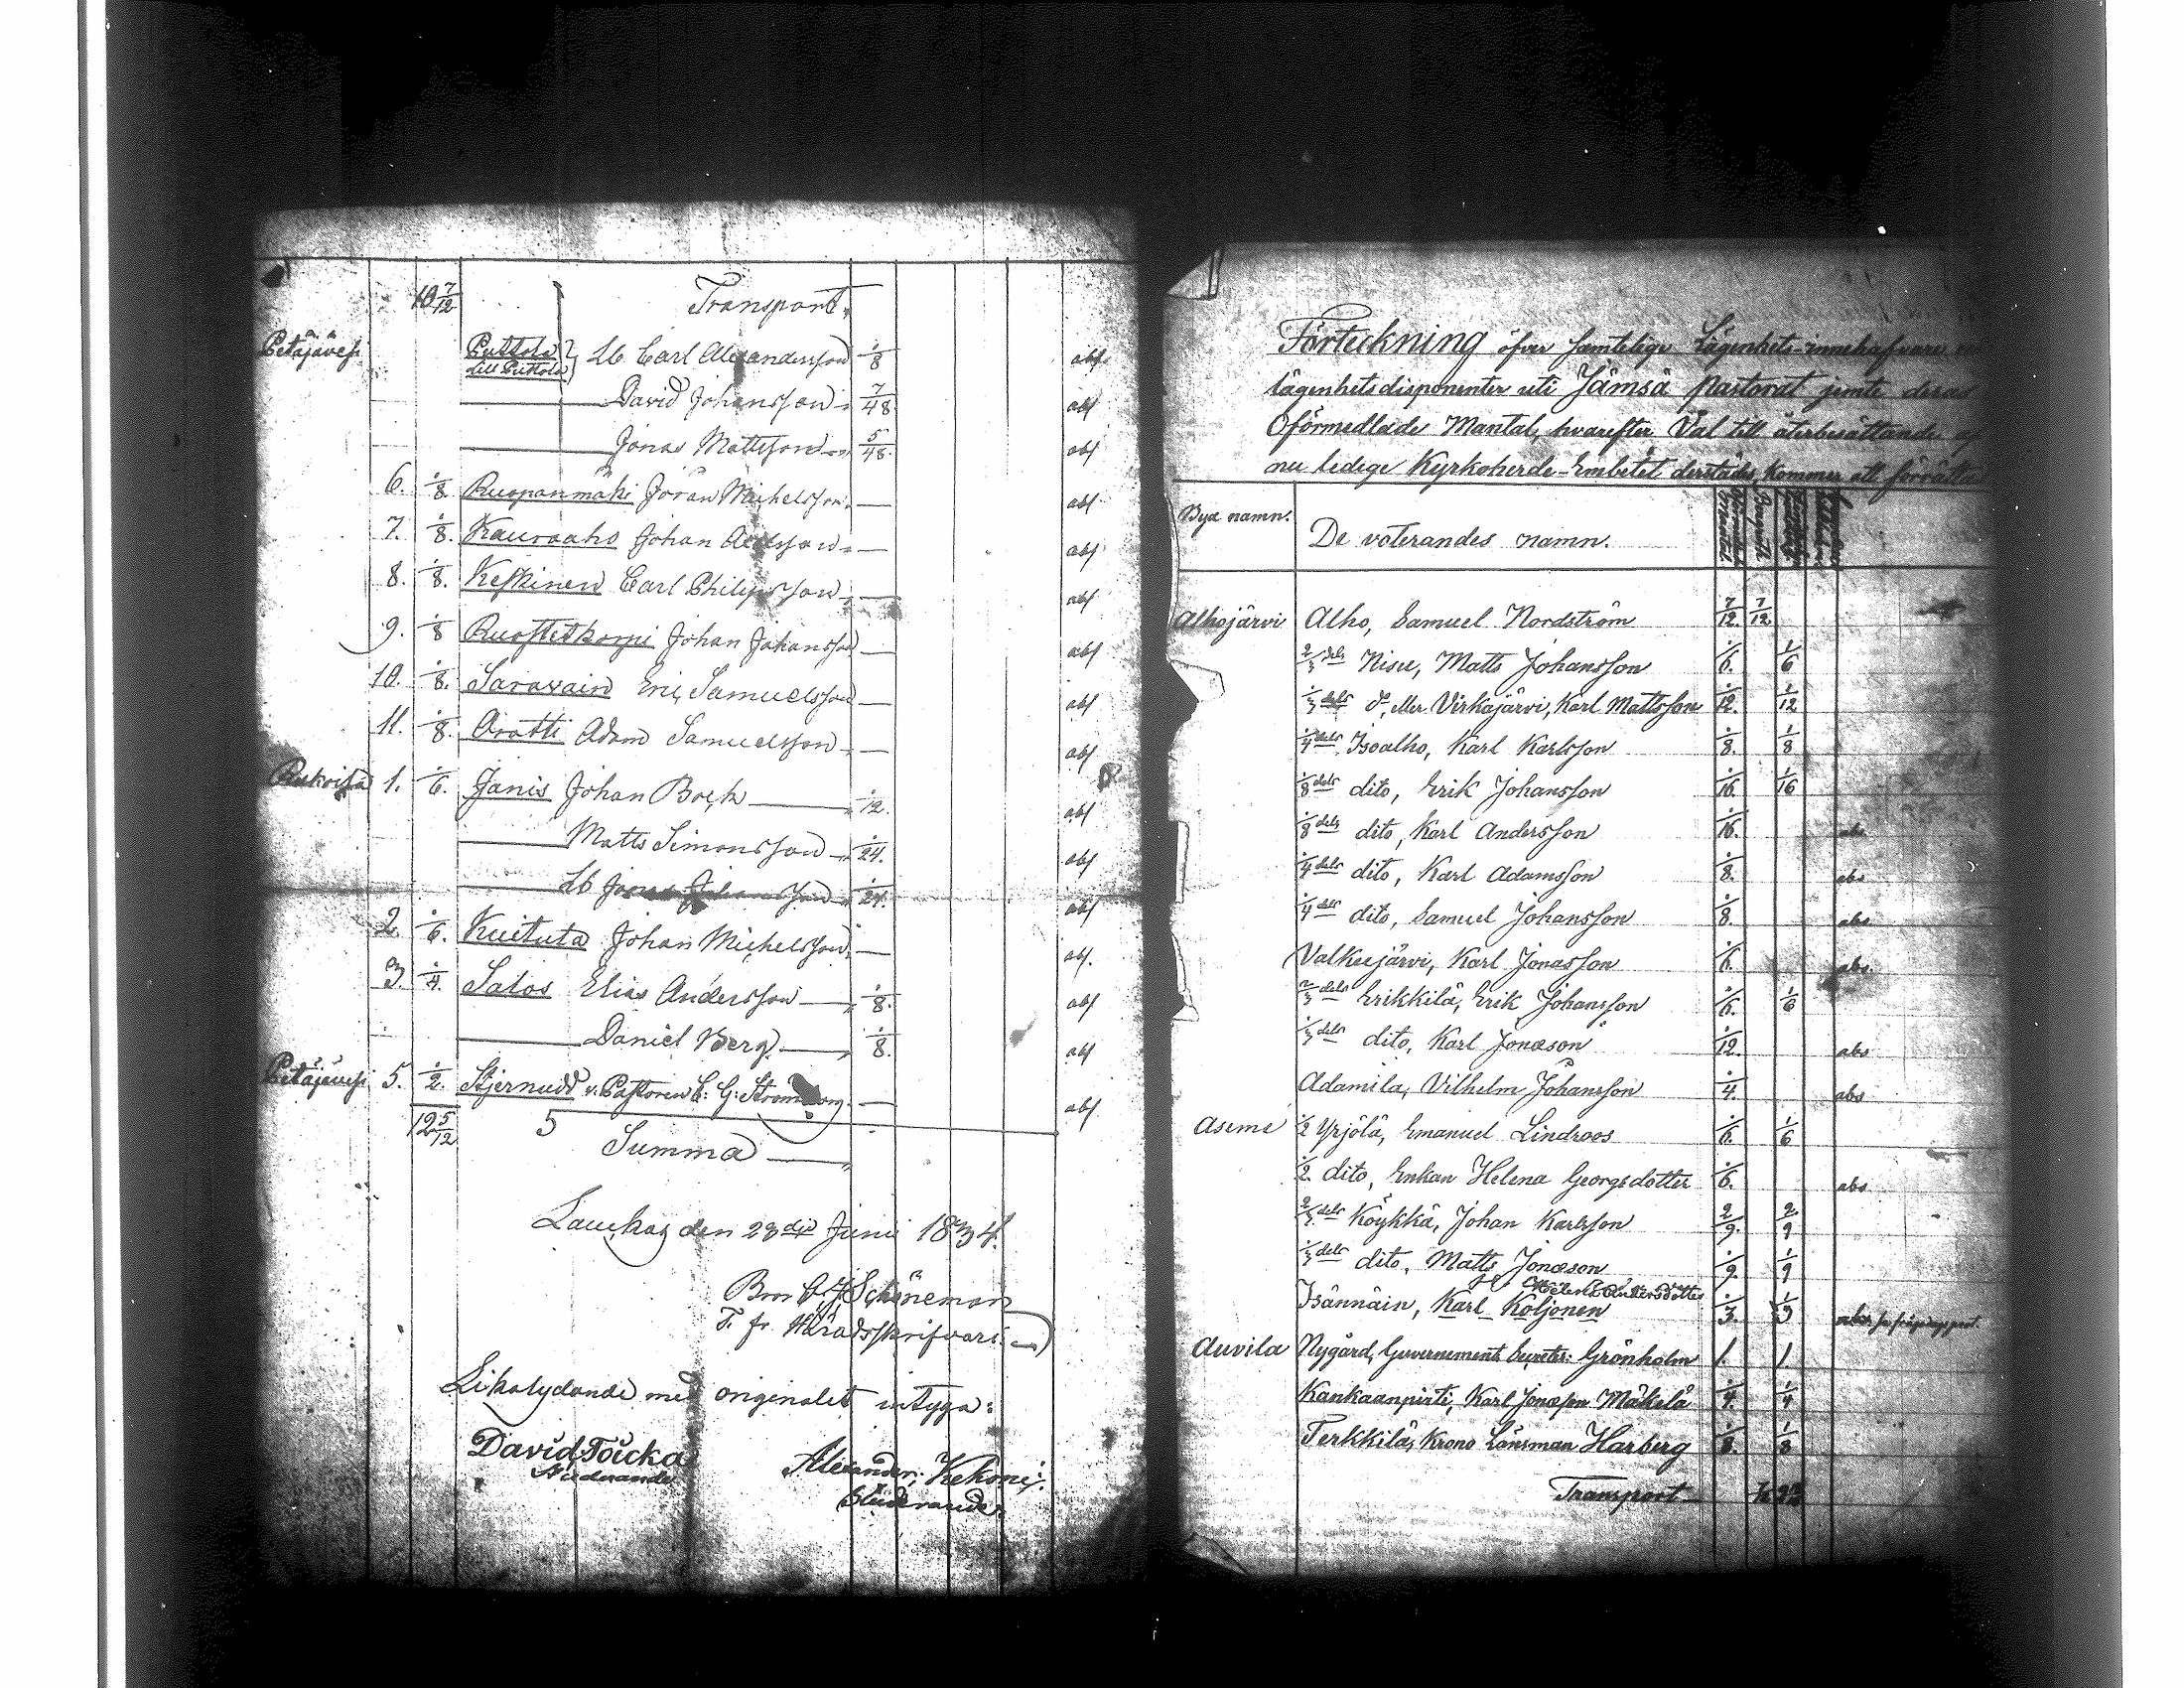 10 7/12 Transport
Petäjävesi Puttola Lb Carl Alexandersson 1/8 abs
till Puttola
David Johansson 7/48 abs
Jonas Mattsson 5/48 abs
6. 1/8 Ruopanmäki Jöran Michelsson abs
7. 1/8 Kauraaho Johan abs
8. 1/8 Keskinen Carl Philipsson abs
9. 1/8 Johan Johansson abs
10. 1/8 Eric Samuelsson abs
11. 1/8 Adam Samuelsson abs
1. 1/6 Janis Johan Bock 1/12 abs
Matts Simonsson 1/24 abs
Lb Jonas Johansson 1/24 abs
2. 1/6 Kuituta Johan Michelsson abs
3. 1/4 Salos Elias Andersson 1/8 abs
Daniel Berg 1/8 abs
Petäjävesi 5. 1/2 v. Pastoren C: G: abs
12 5/12 5
Summa
Laukas den 23die Junii 1834.
Schöneman
T. f. Häradsskrifvare
Likalydande med originalet intyga:
David Toicka Alexander Kekoni
Studerande Studerande
Förteckning öfver samtelige Lägenhets-innehafvare
lägenhetsdisponenter uti Jämsä pastorat jemte deras
Oförmedlade Mantal, hvarefter Val till återbesättande af
nu ledige Kyrkoherde-Embetet derstädes kommer att förrättas
Bya namn. De voterandes namn.
Alhojärvi Alho, Samuel Nordström 7/12 7/12
2/3 dels Nisu, Matts Johansson 1/6 1/6
1/3 dels do, eller Virkajärvi, Karl Mattsson 1/12 1/12
1/4 dels Isoalho, Karl Karlsson 1/8 1/8
1/8 dels dito, Erik Johansson 1/16 1/16
1/8 dels dito, Karl Andersson 1/16 abs
1/4 dels dito, Karl Adamsson 1/8 abs
1/4 dels dito, Samuel Johansson 1/8 abs
Valkeejärvi, Karl Jonasson 1/6 abs
2/3 dels Erikkilä, Erik Johansson 1/6 1/6
1/3 dels dito, Karl Jonæson 1/12 abs
Adamila, Vilhelm Johansson 1/4 abs
Aseme 1/2 Yrjölä, Emanuel Lindroos 1/6 1/6
1/2 dito, Enkan Helena Georgsdotter 1/6 abs
2/3 dels Köykkä, Johan Karlsson 2/9 2/9
1/3 dels dito, Matts Jonæson 1/9 1/9
Isännäin, Karl Koljonen 1/3 1/3
Auvila Nygård, Guvernements Grönholm 1. 1
Kankaanpirti, Karl Mäkelä 1/4 1/4
Terkkilä, Krono Länsman Harberg 1/8 1/8
Transport